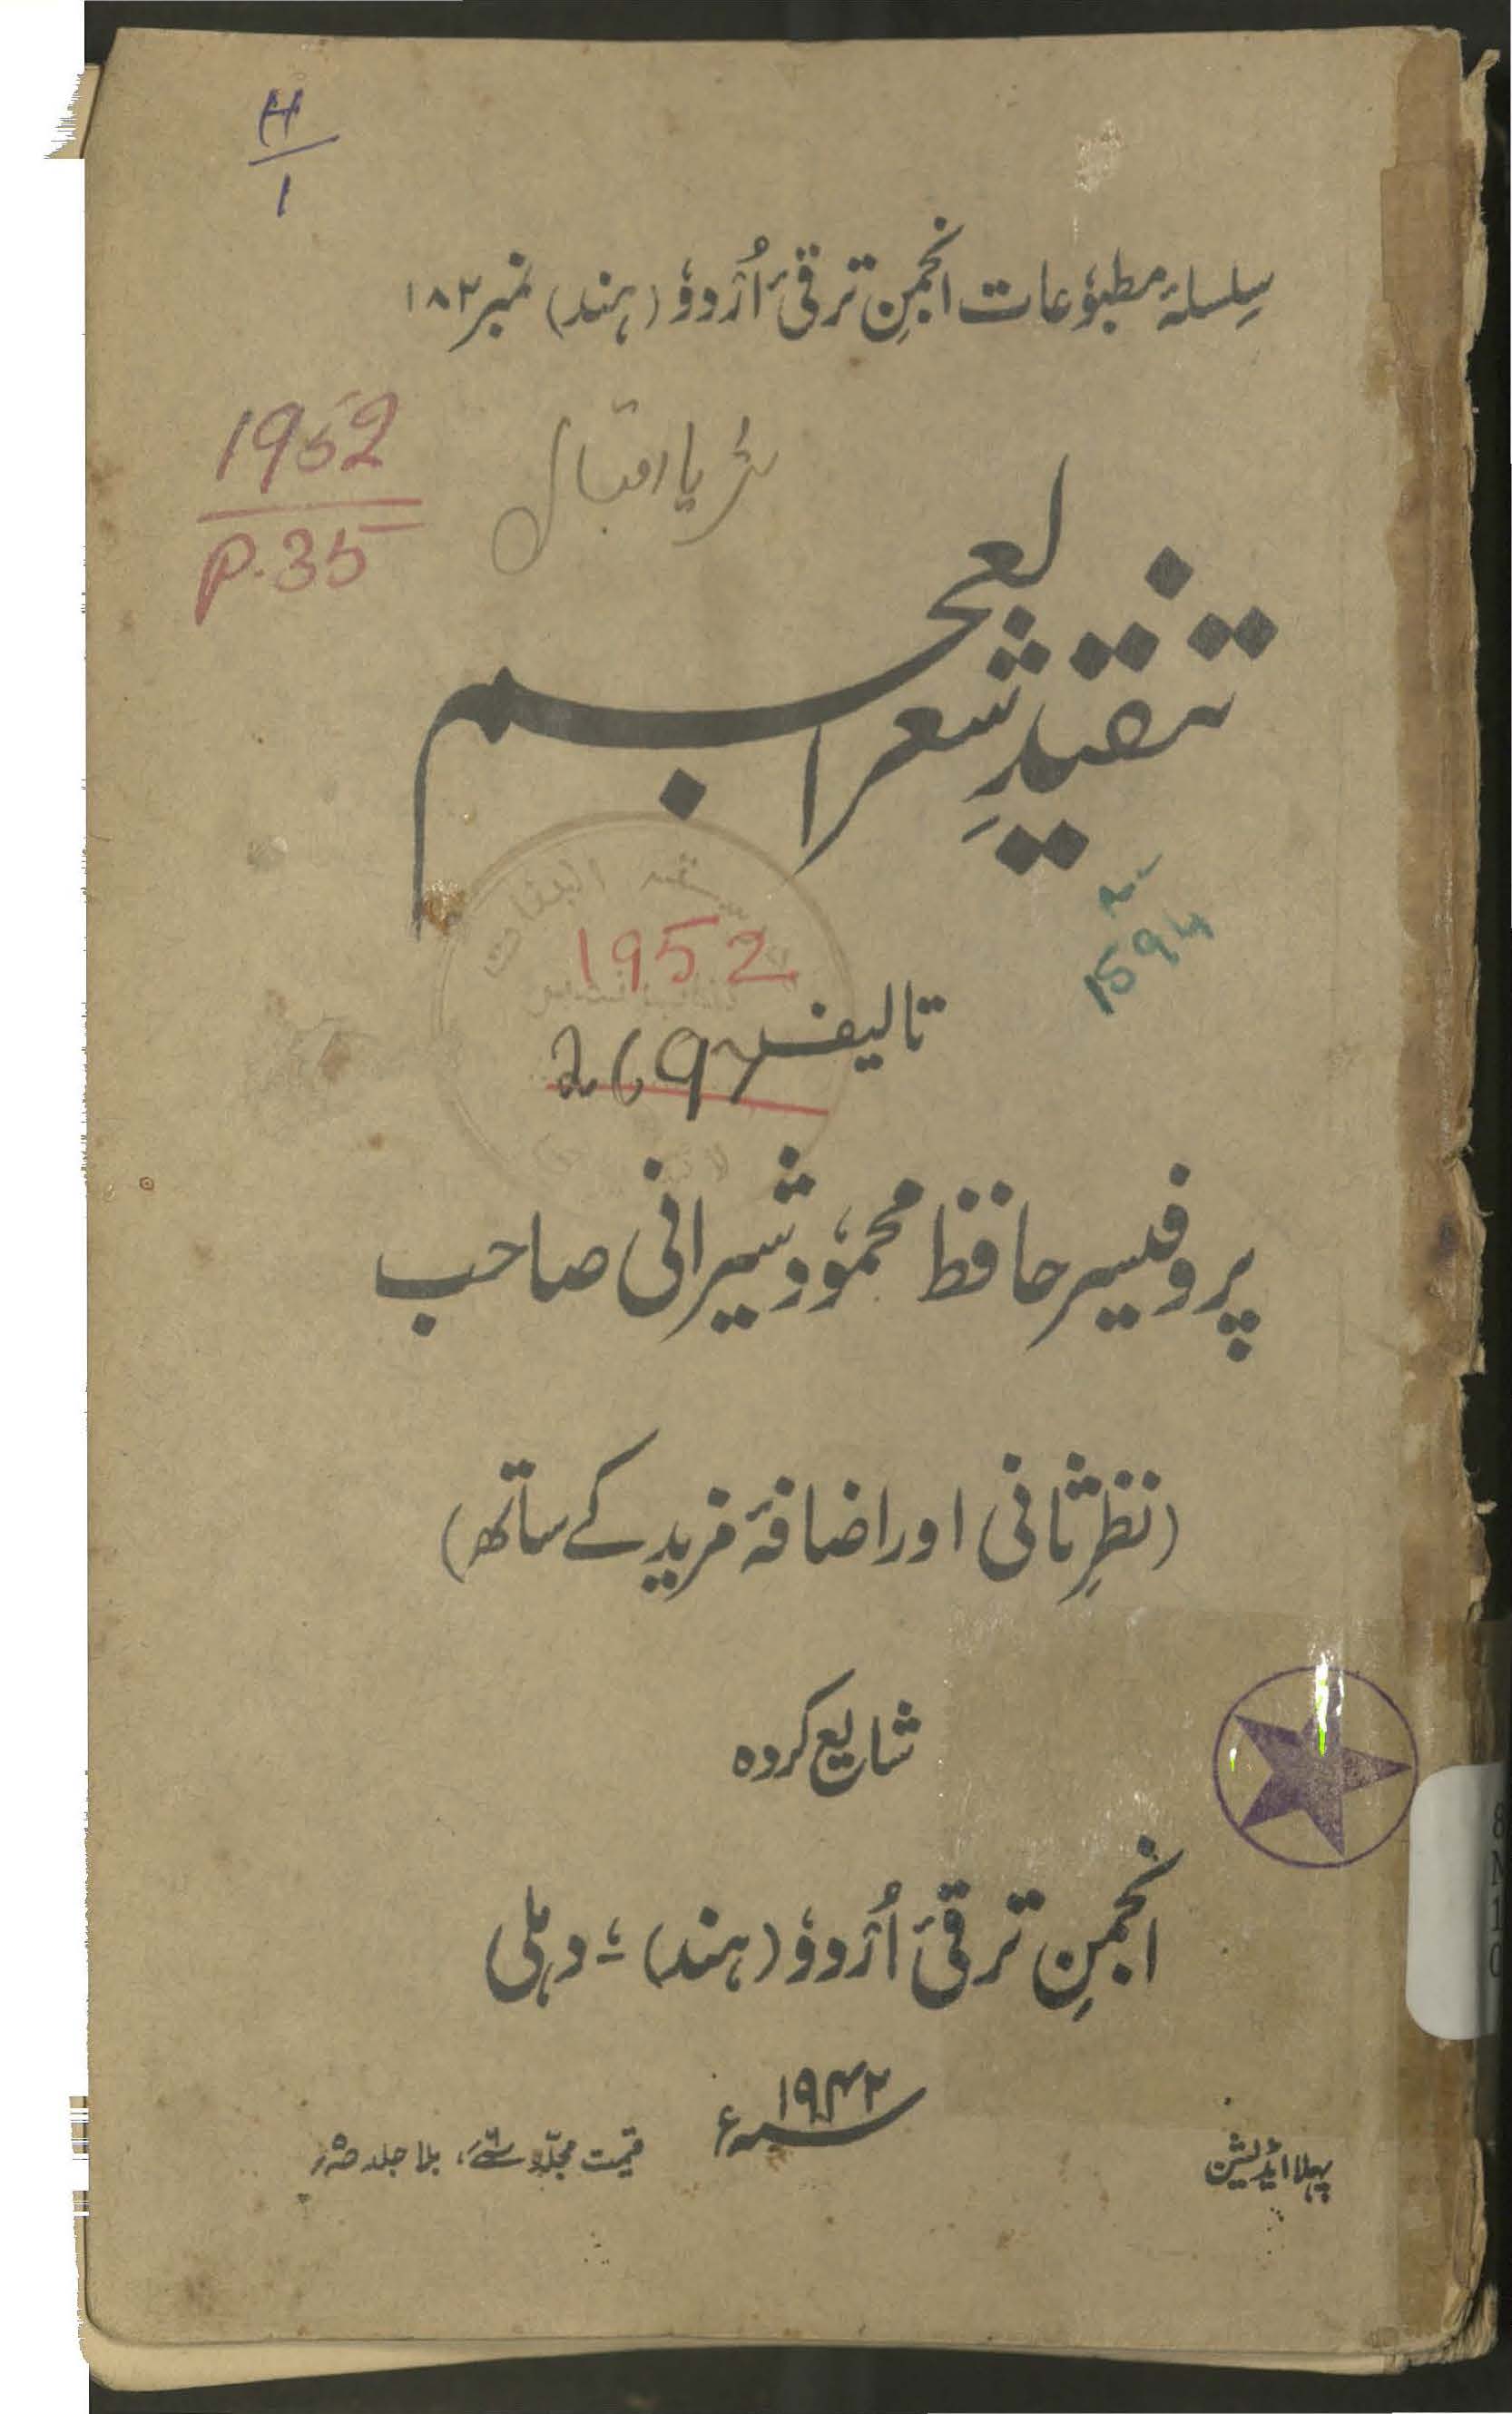 H
1
سِلسلۂ مطبؤعات انجمنِ ترقیٔ اُرْدوٗ (ہند) نمبر ۱۸۳
1952
P.35
تنقیدِ شعرالعجم
1594
1952
تالیف
پروفیسر حافظ محمؤد شیرانی صاحب
(نظرِ ثانی اور اضافۂ مزید کے ساتھ)
شایع کردہ
انجمنِ ترقیٔ اُرْدوٗ (ہند)، دہلی
۱۹۴۲ء
پہلا اڈیشن
قیمت مجلّد بلا جلد